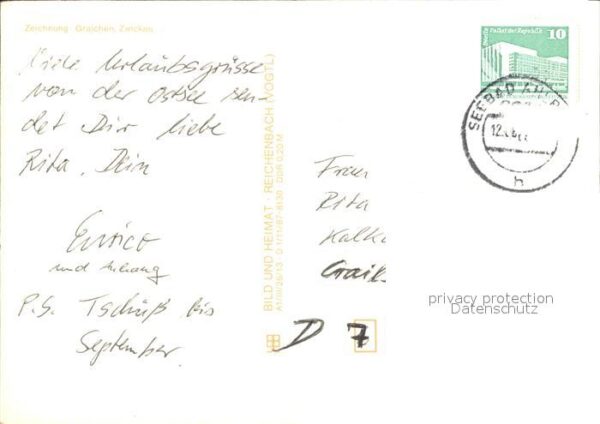 Zeichnung: Graichen, Zwickau
Viele Urlaubsgrüsse
von der Ostsee sen-
det Dir liebe
Rita, Dein
Enrico
und Anhang
P.S. Tschüß bis
September
BILD UND HEIMAT · REICHENBACH (VOGTL)
DDR 0,20 M
Berlin Palast der Republik
10
SEEBAD
12.
h
Frau
Rita
D 7
privacy protection
Datenschutz